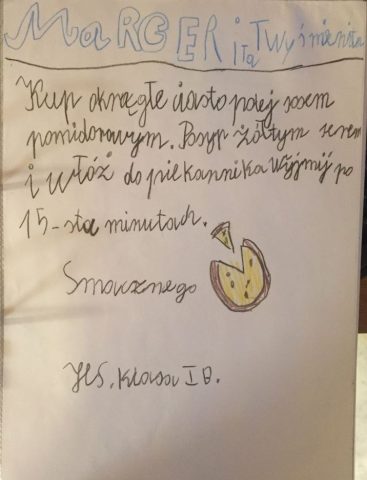 MaRGER iTa Wyśmienita
Kup okręgłe ciasto polej sosem
pomidorowym. Posyp żółtym serem
i włóż do piekannika Wyjmij po
15-sta minutach.
Smacznego
Klasa I B.